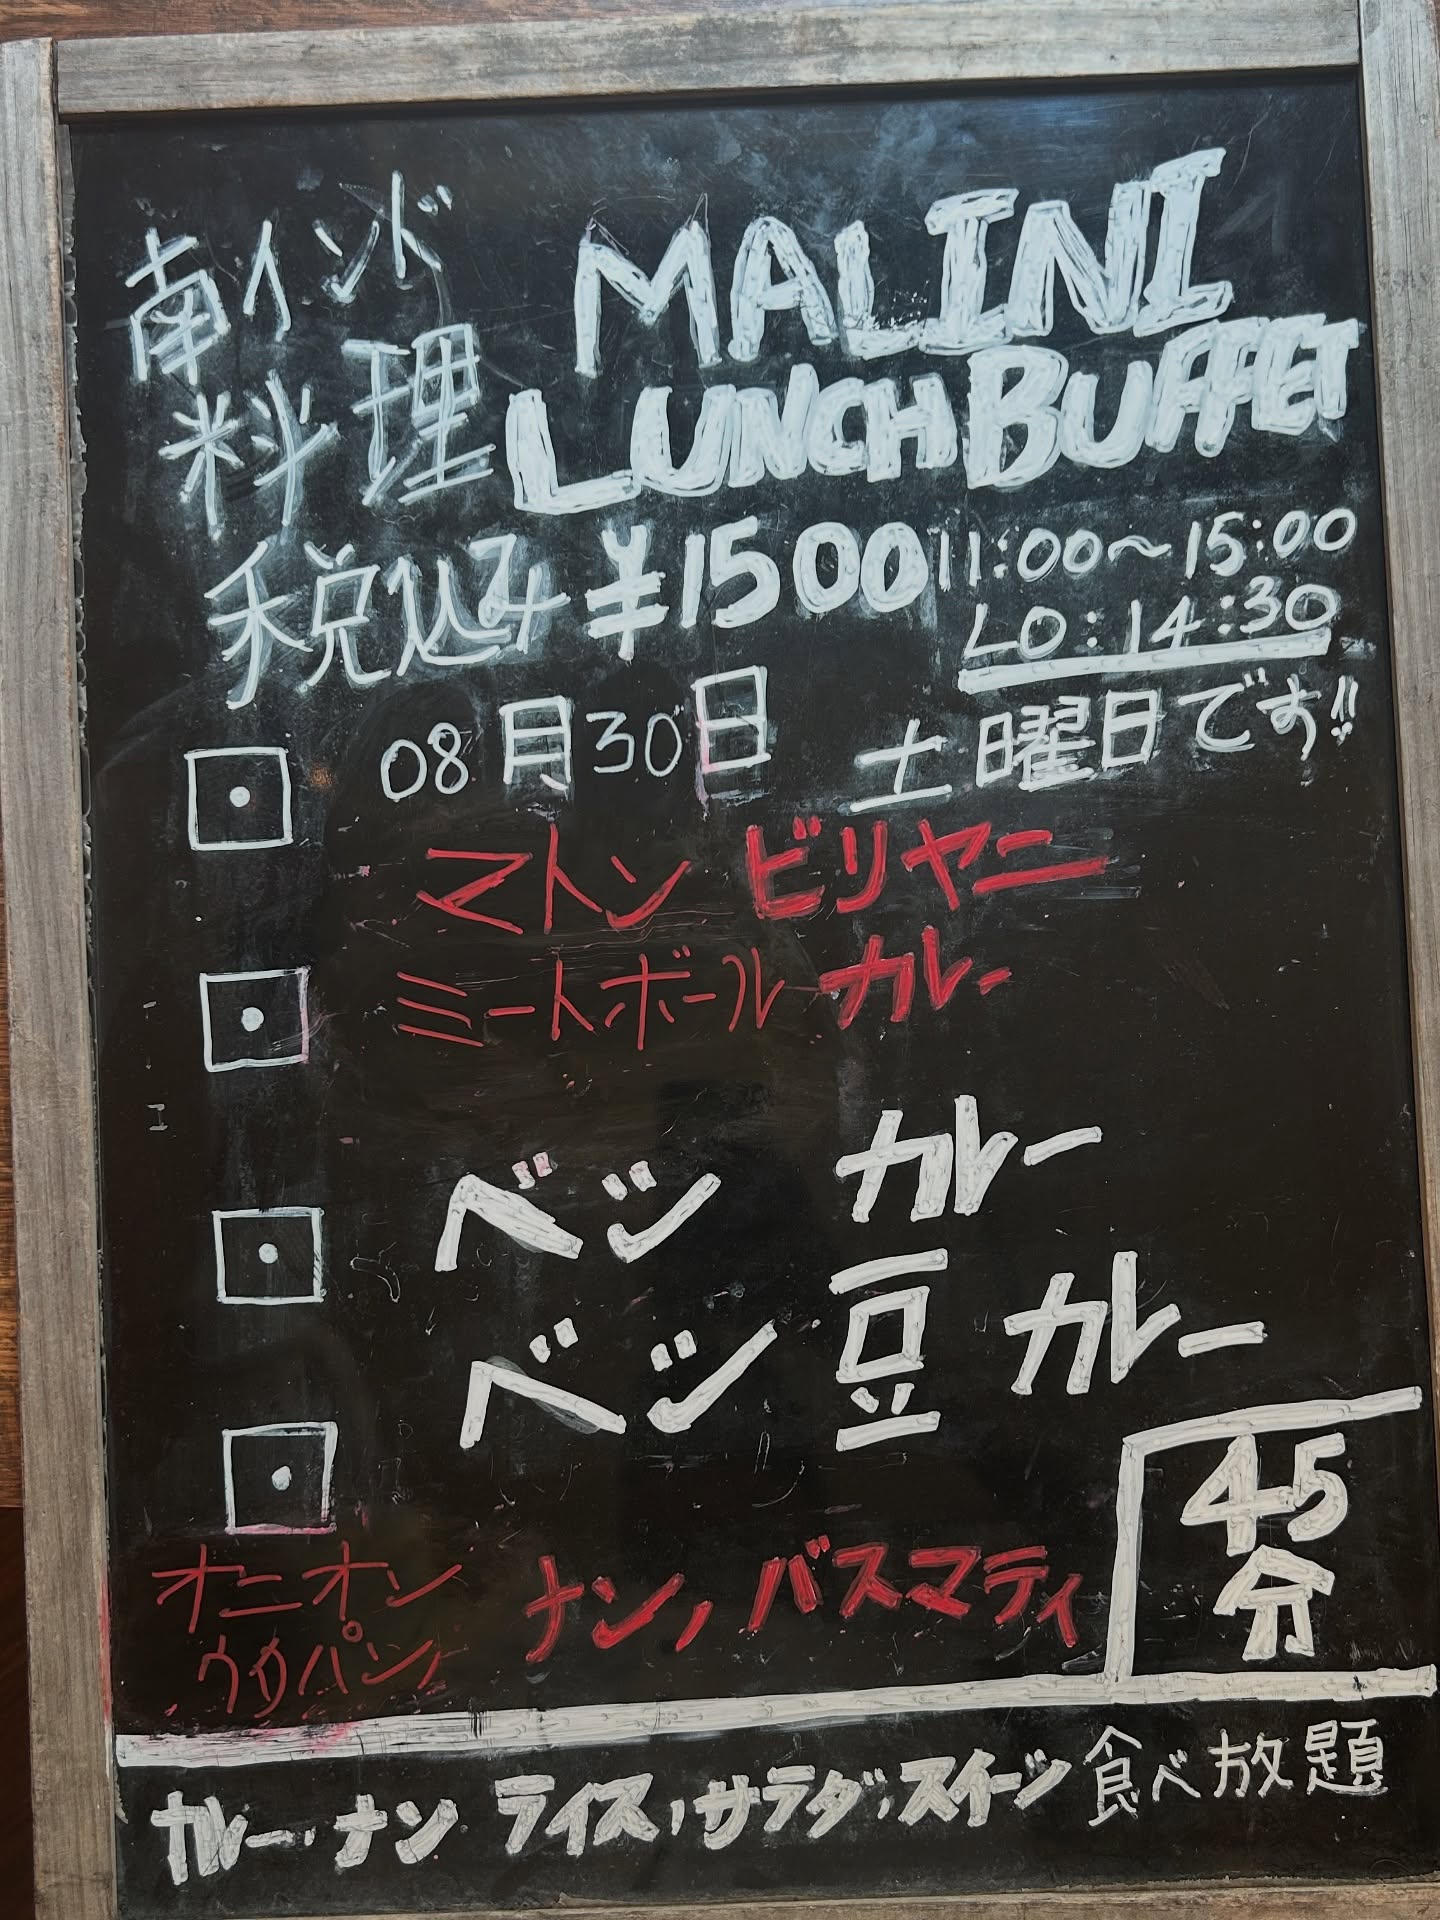 南インド
料理
MALINI
LUNCH BUFFET
税込み ¥1500 11:00〜15:00
LO:14:30
08月30日 土曜日です!!
マトン ビリヤニ
ミートボール カレー
ベジ カレー
ベジ 豆 カレー
オニオン
ウタパン, ナン, バスマティ
45
分
カレー, ナン ライス, サラダ, スイーツ 食べ放題